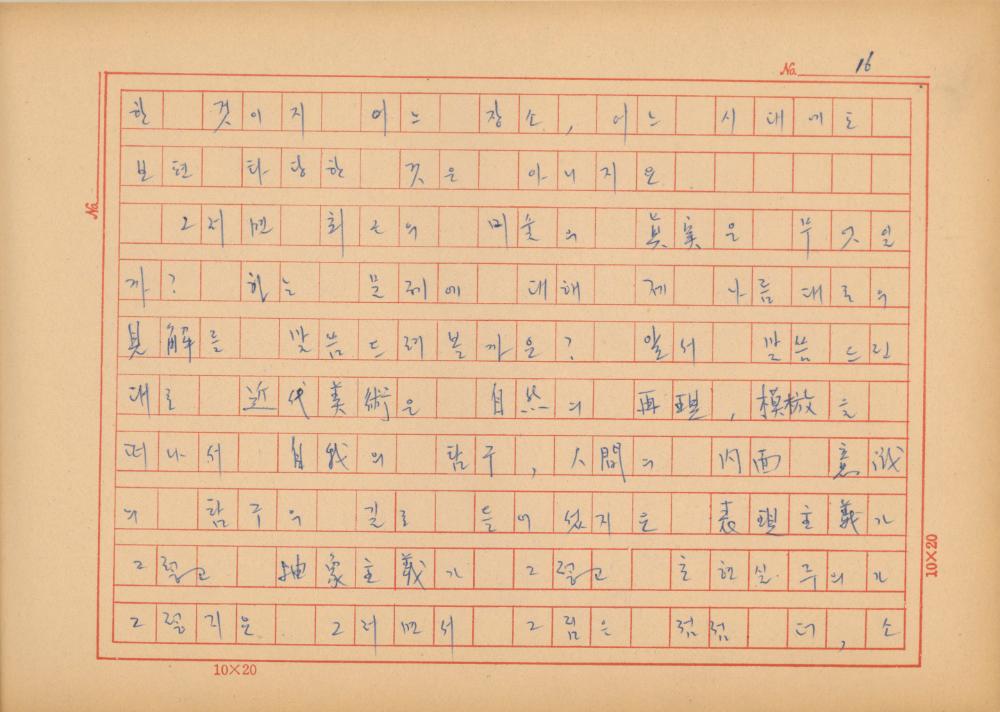 No. 16
한 것이지 어느 장소, 어느 시대에도
보편 타당한 것은 아니지요
그러면 회화의 미술의 真実은 무엇일
까? 하는 문제에 대해 제 나름대로의
見解를 말씀드려볼까요? 앞서 말씀드린
대로 近代美術은 自然의 再現, 模倣을
떠나서 自我의 탐구, 人間의 内面 意識
의 탐구의 길로 들어섰지요 表現主義가
그렇고 抽象主義가 그렇고 초현실주의가
그렇지요 그러면서 그림은 점점 더, 소
No.
10×20
10×20